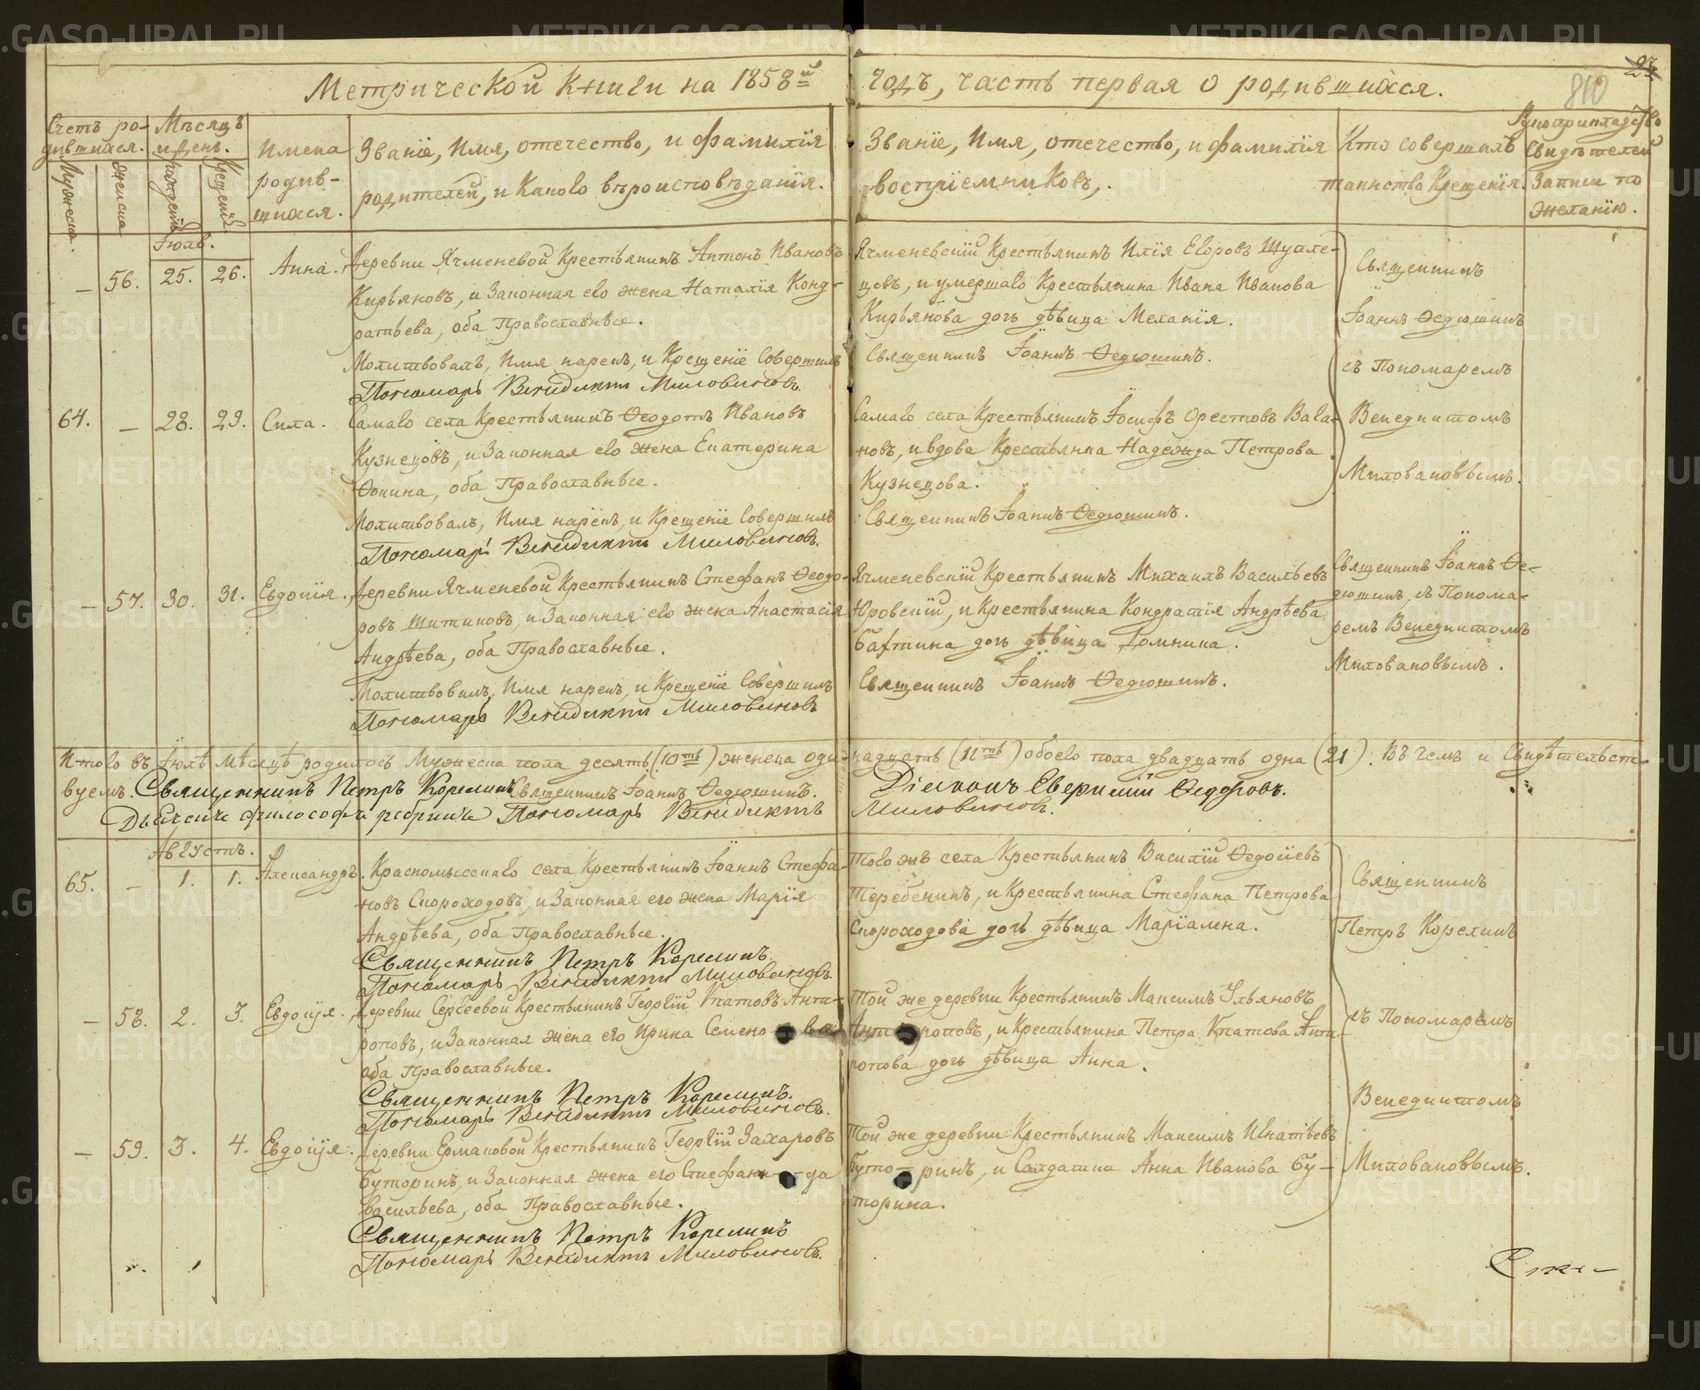 Метрической книги на 1858й годъ, часть первая о родившихся.
810
Счетъ ро-
дившихся.
Мужеска.
Женска
Мѣсяцъ
и день.
Рожденія
Крещенія
Имена
родив-
шихся.
Званіе, Имя, отечество, и фамилія
родителей, и какого вѣроисповѣданія.
Званіе, Имя, отечество, и фамилія
воспріемниковъ.
Кто совершалъ
таинство Крещенія.
Рукоприкладство
свидѣтелей
записи по
желанію.
Іюль.
– 56. 25. 26. Анна. Деревни Ячменевой Крестьянинъ Антонъ Ивановъ
Кирьяновъ, и Законная его жена Наталія Конд-
ратьева, оба Православные.
Молитвовалъ, Имя нарекъ, и Крещеніе Совершилъ
Пономарь Венедиктъ Миловановъ.
Ячменевскій Крестьянинъ Илія Егоровъ Щупле-
цовъ, и умершаго Крестьянина Ивана Иванова
Кирьянова дочь дѣвица Меланія.
Священникъ Іоаннъ Ѳедюшинъ.
64. – 28. 29. Сила. Самаго села Крестьянинъ Ѳеодотъ Ивановъ
Кузнецовъ, и Законная его жена Екатерина
Ѳокина, оба Православные.
Молитвовалъ, Имя нарекъ, и Крещеніе Совершилъ
Пономарь Венедиктъ Миловановъ.
Самаго села Крестьянинъ Іосифъ Орестовъ Вага-
новъ, и вдова Крестьянка Надежда Петрова
Кузнецова.
Священникъ Іоаннъ Ѳедюшинъ.
Священникъ
Іоаннъ Ѳедюшинъ
съ Пономаремъ
Венедиктомъ
Миловановымъ.
– 57. 30. 31. Евдокія. Деревни Ячменевой Крестьянинъ Стефанъ Ѳеодо-
ровъ Шитиковъ, и Законная его жена Анастасія
Андрѣева, оба Православные.
Молитвовалъ, Имя нарекъ, и Крещеніе Совершилъ
Пономарь Венедиктъ Миловановъ
Ячменевскій Крестьянинъ Михаилъ Васильевъ
Юровскій, и Крестьянина Кондратія Андрѣева
Бахтина дочь дѣвица Домника.
Священникъ Іоаннъ Ѳедюшинъ.
Священникъ Іоаннъ Ѳе-
дюшинъ, съ Понома-
ремъ Венедиктомъ
Миловановымъ.
Итого въ Іюлѣ мѣсяцѣ родилось Мужеска пола десять (10ть) женска оди-надцать (11ть) обоего пола двадцать одна (21). Въ чемъ и свидѣтельст-
вуемъ. Священникъ Петръ Корелинъ Священникъ Іоаннъ Ѳедюшинъ. Діаконъ Ѳедоровъ.
Пономарь Венедиктъ Миловановъ.
Августъ.
65. – 1. 1. Александръ. Красномысскаго села Крестьянинъ Іоаннъ Стефа-
новъ Скороходовъ, и Законная его жена Марія
Андрѣева, оба Православные.
Священникъ Петръ Корелинъ
Пономарь Венедиктъ Миловановъ.
Того жъ села Крестьянинъ Василій Ѳедосіевъ
Теребенинъ, и Крестьянина Стефана Петрова
Скороходова дочь дѣвица Маріамна.
– 58. 2. 3. Евдокія. Деревни Сергеевой Крестьянинъ Георгій Ипатовъ Анти-
роповъ, и Законная жена его Ирина Семенова
оба Православные.
Священникъ Петръ Корелинъ.
Пономарь Венедиктъ Миловановъ.
Той же деревни Крестьянинъ Максимъ Ульяновъ
Антроповъ, и Крестьянина Петра Ипатова Ант-
ропова дочь дѣвица Анна.
– 59. 3. 4. Евдокія. Деревни Ермаковой Крестьянинъ Георгій Захаровъ
Буторинъ, и Законная жена его Стефанида
Васильева, оба Православные.
Священникъ Петръ Корелинъ
Пономарь Венедиктъ Миловановъ.
Той же деревни Крестьянинъ Максимъ Игнатьевъ
Буто-ринъ, и Солдатка Анна Иванова Бу-
торина.
Священникъ
Петръ Корелинъ
съ Пономаремъ
Венедиктомъ
Миловановымъ.
METRIKI.GASO-URAL.RU